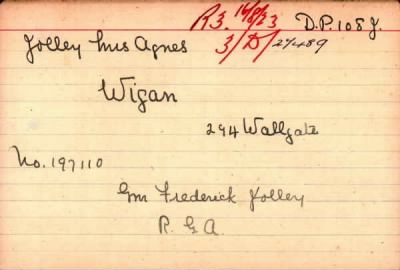 R3. 16/8/23 D.P. 108 J.
3/D/27489
Jolley Mrs Agnes
Wigan
294 Wallgate
No. 197110
Gnr Frederick Jolley
R. G. A.